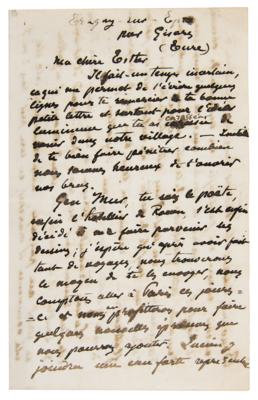 Eragny-sur-Epte
par Gisors
(Eure)
Ma chère Esther
Il fait un temps incertain,
ce qui me permet de t'écrire quelques
lignes pour te remercier de ta bonne
petite lettre et surtout pour l'idée
lumineuse que tu as caressée de
venir dans notre village. — Inutile
de te bien faire pénétrer combien
nous serons heureux de t'avoir
nos bras.
Geo. Meur, tu sais le poète,
enfin l'hôtelier de Rouen s'est enfin
décidé à me faire parvenir les
dessins, j'espère qu'après avoir fait
tant de voyages, nous trouverons
le moyen de te les envoyer, nous
comptons aller à Paris ces jours-
ci et nous profiterons pour faire
quelques nouvelles épreuves que
nous pourrons ajouter. Lucien y
joindra une eau forte